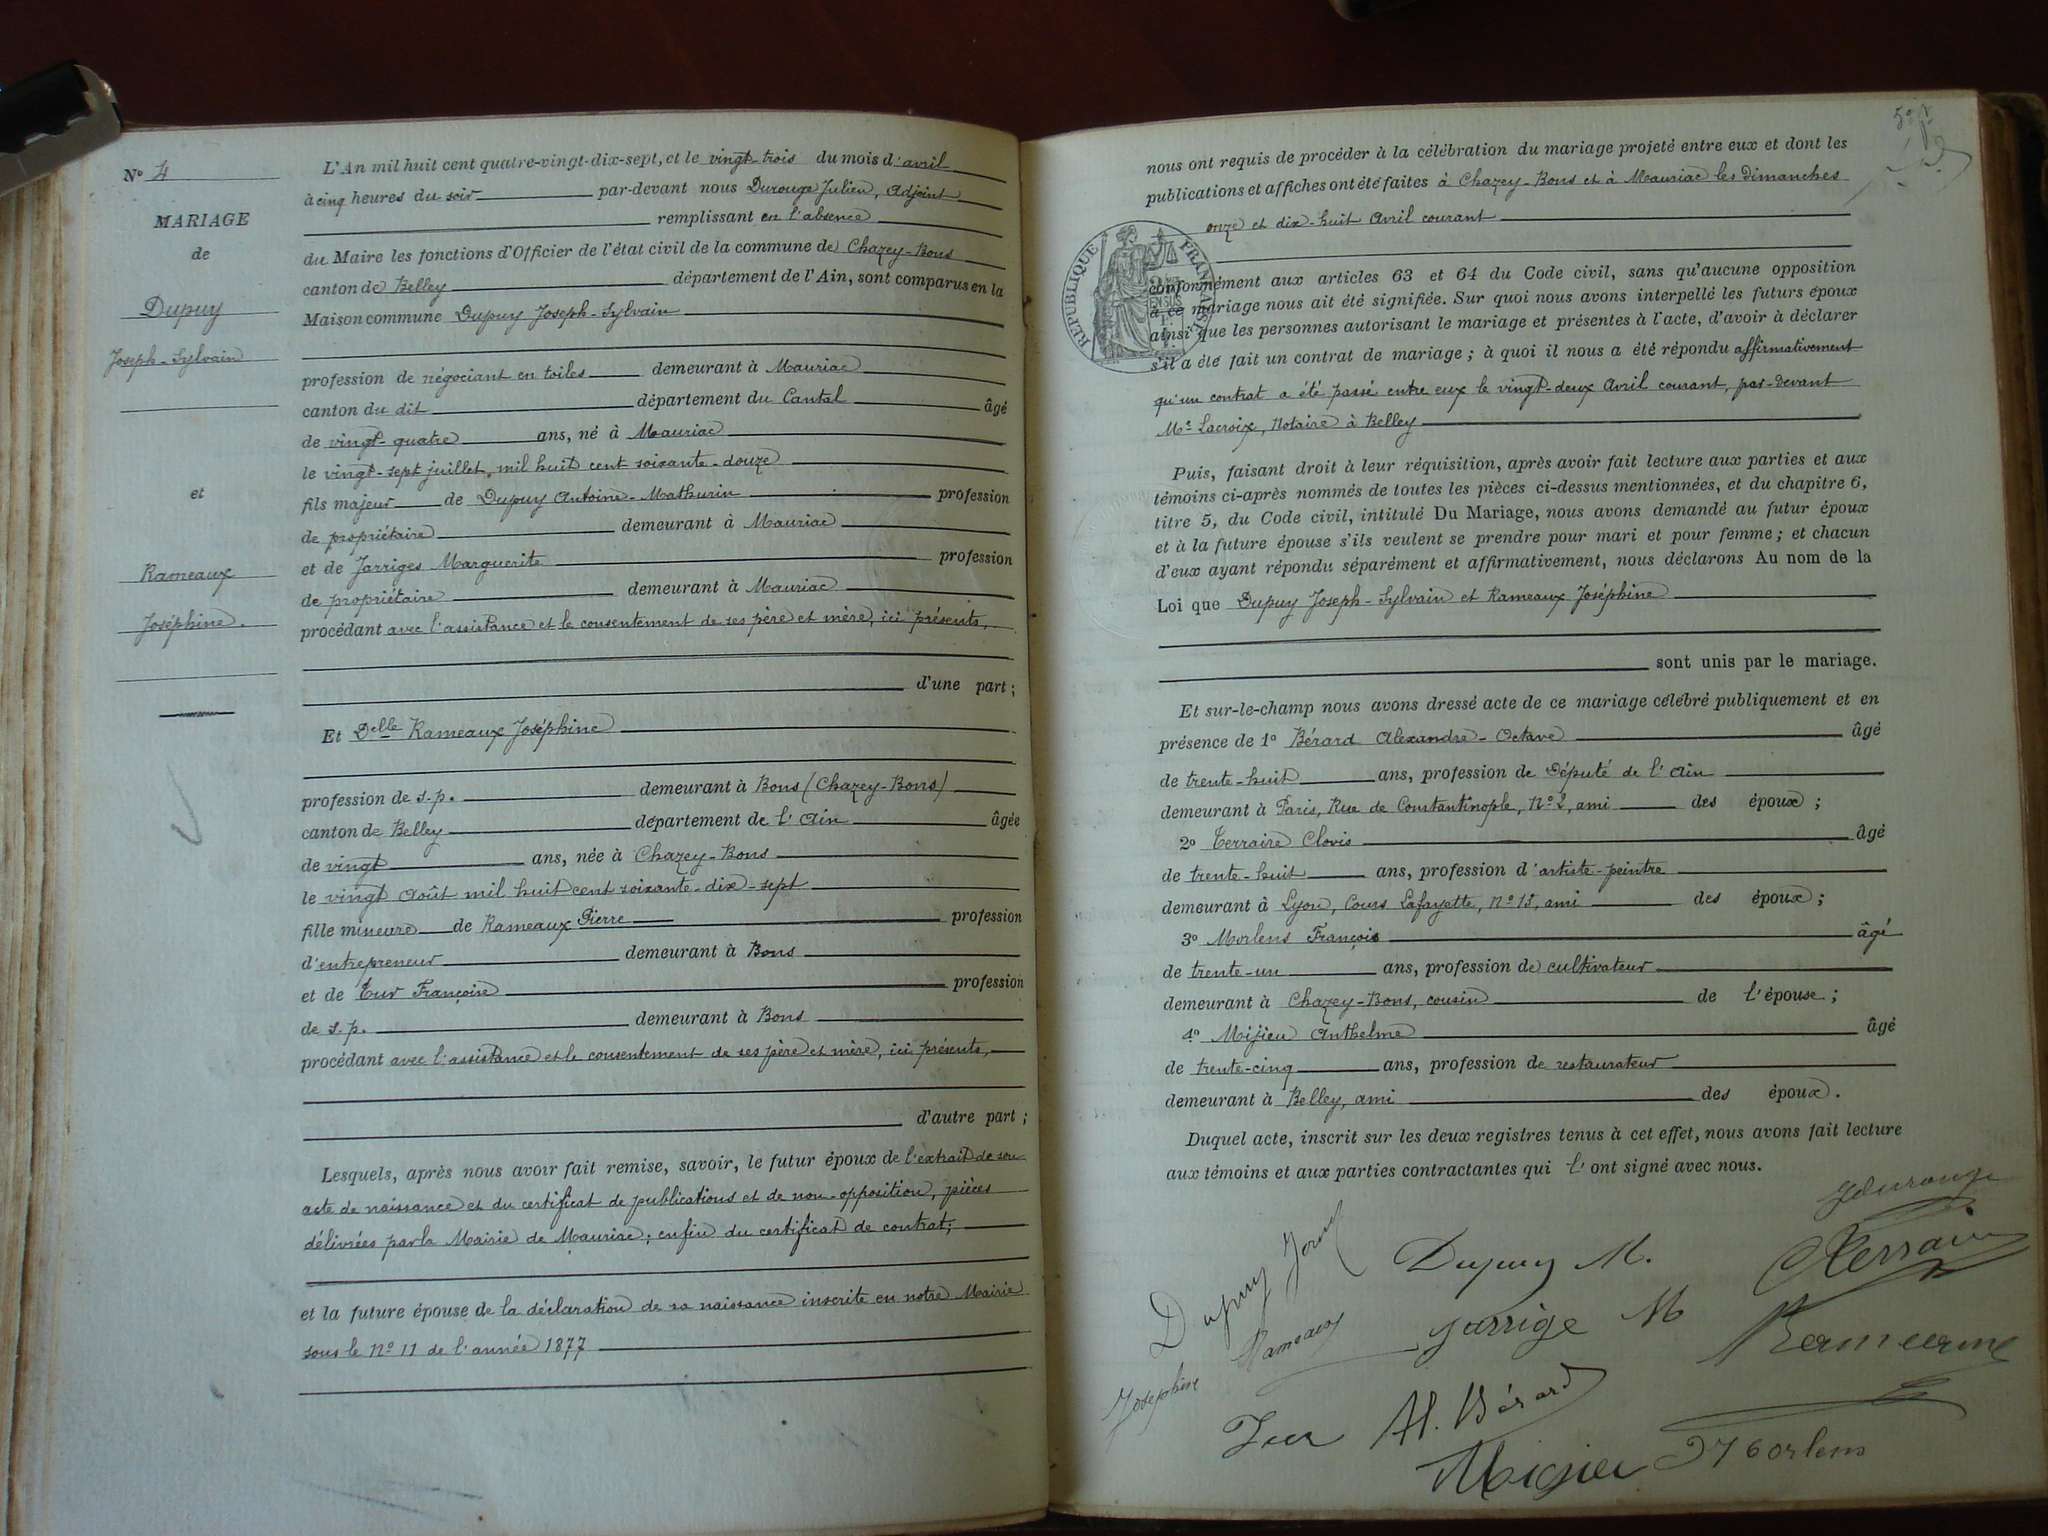 N° 4
MARIAGE
de
Dupuy
Joseph-Sylvain
et
Rameaux
Joséphine.
L'An mil huit cent quatre-vingt-dix-sept, et le vingt-trois du mois d'avril
à cinq heures du soir par-devant nous Durouge Julien, Adjoint
remplissant en l'absence
du Maire les fonctions d'Officier de l'état civil de la commune de Chazey-Bons
canton de Belley département de l'Ain, sont comparus en la
Maison commune Dupuy Joseph-Sylvain
profession de négociant en toiles demeurant à Mauriac
canton du dit département du Cantal âgé
de vingt-quatre ans, né à Mauriac
le vingt-sept juillet, mil huit cent soixante-douze
fils majeur de Dupuy Antoine-Mathurin profession
de propriétaire demeurant à Mauriac
et de Jarriges Marguerite profession
de propriétaire demeurant à Mauriac
procédant avec l'assistance et le consentement de ses père et mère, ici présents,
d'une part ;
Et Delle Rameaux Joséphine
profession de s.p. demeurant à Bons (Chazey-Bons)
canton de Belley département de l'Ain âgée
de vingt ans, née à Chazey-Bons
le vingt Août mil huit cent soixante-dix-sept
fille mineure de Rameaux Pierre profession
d'entrepreneur demeurant à Bons
et de Tur Françoise profession
de s.p. demeurant à Bons
procédant avec l'assistance et le consentement de ses père et mère, ici présents,
d'autre part ;
Lesquels, après nous avoir fait remise, savoir, le futur époux de l'extrait de son
acte de naissance et du certificat de publications et de non-opposition, pièces
délivrées par la Mairie de Mauriac ; enfin du certificat de contrat ;
et la future épouse de la déclaration de sa naissance inscrite en notre Mairie
sous le N° 11 de l'année 1877
nous ont requis de procéder à la célébration du mariage projeté entre eux et dont les
publications et affiches ont été faites à Chazey-Bons et à Mauriac les dimanches
onze et dix-huit Avril courant
RÉPUBLIQUE FRANÇAISE
conformément aux articles 63 et 64 du Code civil, sans qu'aucune opposition
à ce mariage nous ait été signifiée. Sur quoi nous avons interpellé les futurs époux
ainsi que les personnes autorisant le mariage et présentes à l'acte, d'avoir à déclarer
s'il a été fait un contrat de mariage ; à quoi il nous a été répondu affirmativement
qu'un contrat a été passé entre eux le vingt-deux Avril courant, par-devant
Me Lacroix, Notaire à Belley
Puis, faisant droit à leur réquisition, après avoir fait lecture aux parties et aux
témoins ci-après nommés de toutes les pièces ci-dessus mentionnées, et du chapitre 6,
titre 5, du Code civil, intitulé Du Mariage, nous avons demandé au futur époux
et à la future épouse s'ils veulent se prendre pour mari et pour femme ; et chacun
d'eux ayant répondu séparément et affirmativement, nous déclarons Au nom de la
Loi que Dupuy Joseph-Sylvain et Rameaux Joséphine
sont unis par le mariage.
Et sur-le-champ nous avons dressé acte de ce mariage célébré publiquement et en
présence de 1° Bérard Alexandre-Octave âgé
de trente-huit ans, profession de Député de l'Ain
demeurant à Paris, Rue de Constantinople, N° 2, ami des époux ;
2° Terraire Clovis âgé
de trente-huit ans, profession d'artiste-peintre
demeurant à Lyon, Cours Lafayette, N° 15, ami des époux ;
3° Morlens François âgé
de trente-un ans, profession de cultivateur
demeurant à Chazey-Bons, cousin de l'épouse ;
4° Mijieu Anthelme âgé
de trente-cinq ans, profession de restaurateur
demeurant à Belley, ami des époux.
Duquel acte, inscrit sur les deux registres tenus à cet effet, nous avons fait lecture
aux témoins et aux parties contractantes qui l'ont signé avec nous.
Jdurouge
Dupuy
Dupuy M.
CTerraire
Rameaux
Joséphine
Jarrige M
Tur
Al. Bérard
Morlens